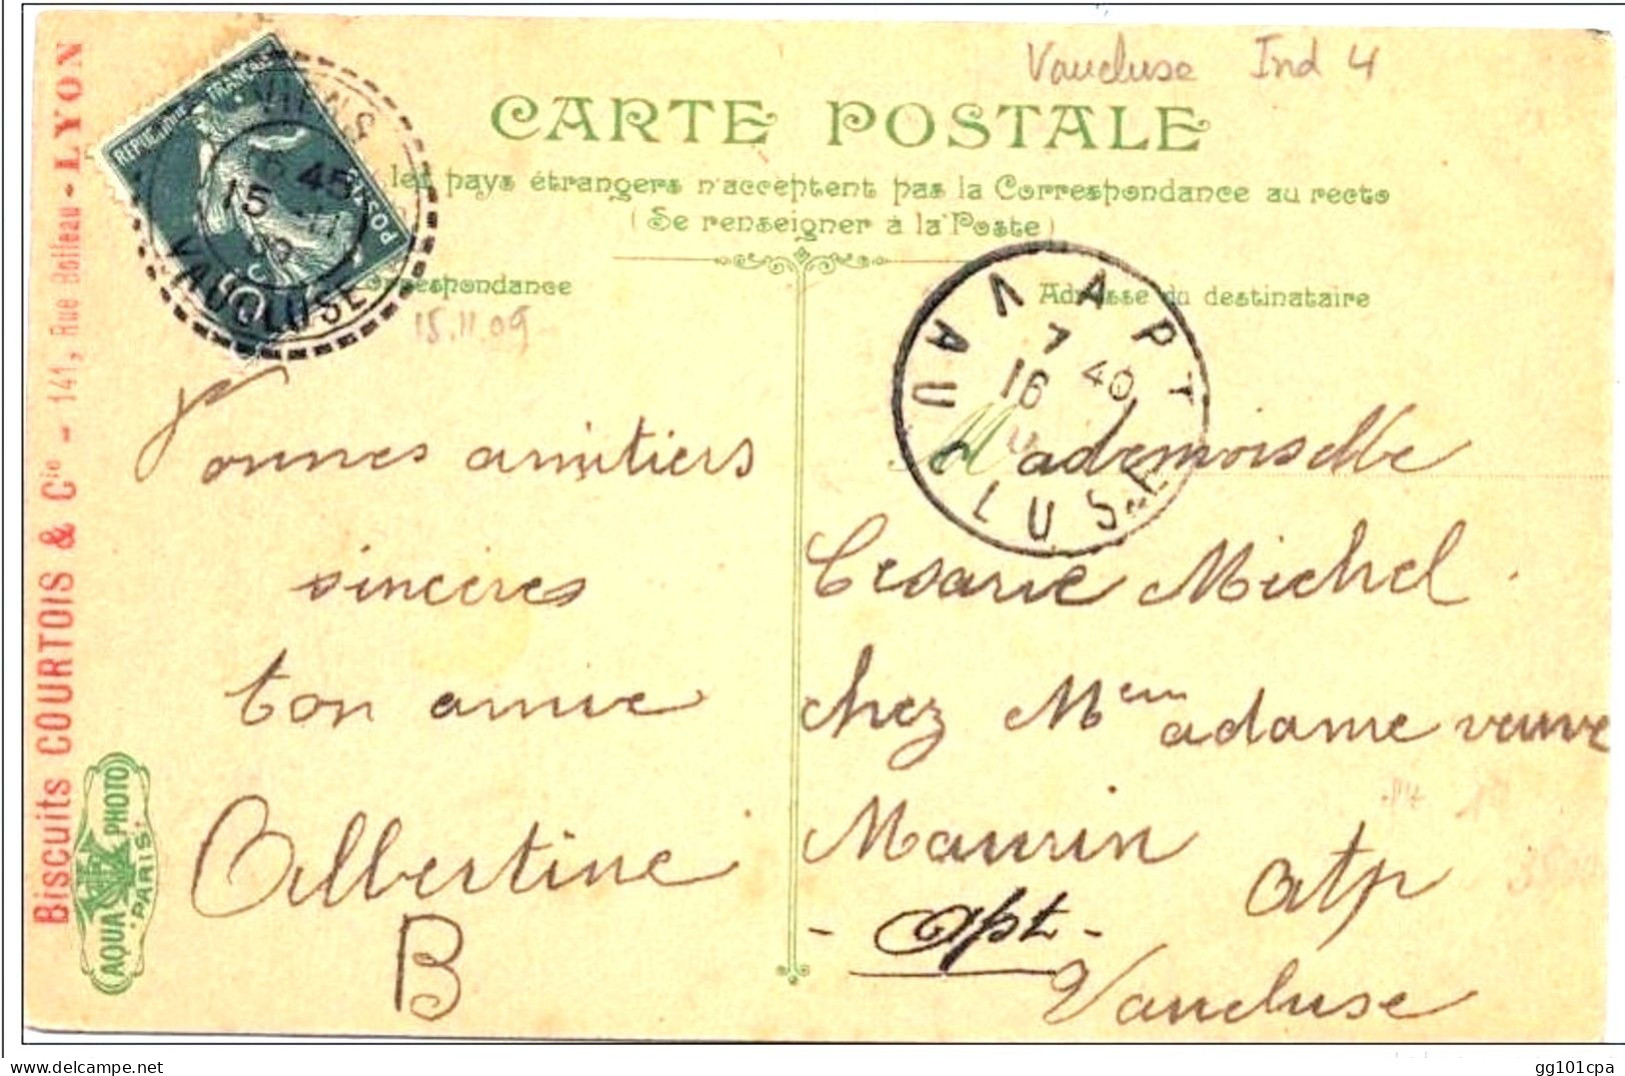 Vaucluse Ind 4
CARTE POSTALE
les pays étrangers n'acceptent pas la Correspondance au recto
(Se renseigner à la Poste)
Correspondance
Adresse du destinataire
REPUBLIQUE FRANÇAISE
POSTES
10
45
15
VAUCLUSE
15.11.09
APT
7 40
16
VAUCLUSE
Bonnes amitiers
sincères
ton amie
Albertine
B
Mademoiselle
Cesarie Michel
chez Mem adame veuve
Maurin
atp
- Apt -
Vaucluse
Biscuits COURTOIS & Cie - 141, Rue Boileau - LYON
AQUA PHOTO
PARIS
gg101cpa